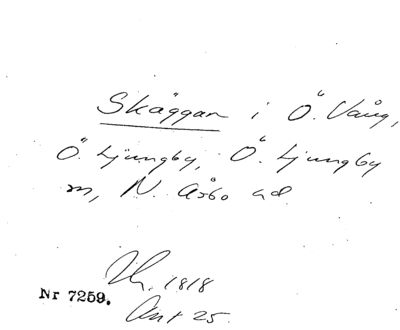 Skäggan i Ö. Vång,
Ö. Ljungby, Ö. Ljungby
sn, N. Åsbo hd
1818
Nr 7259.
Akt 25.